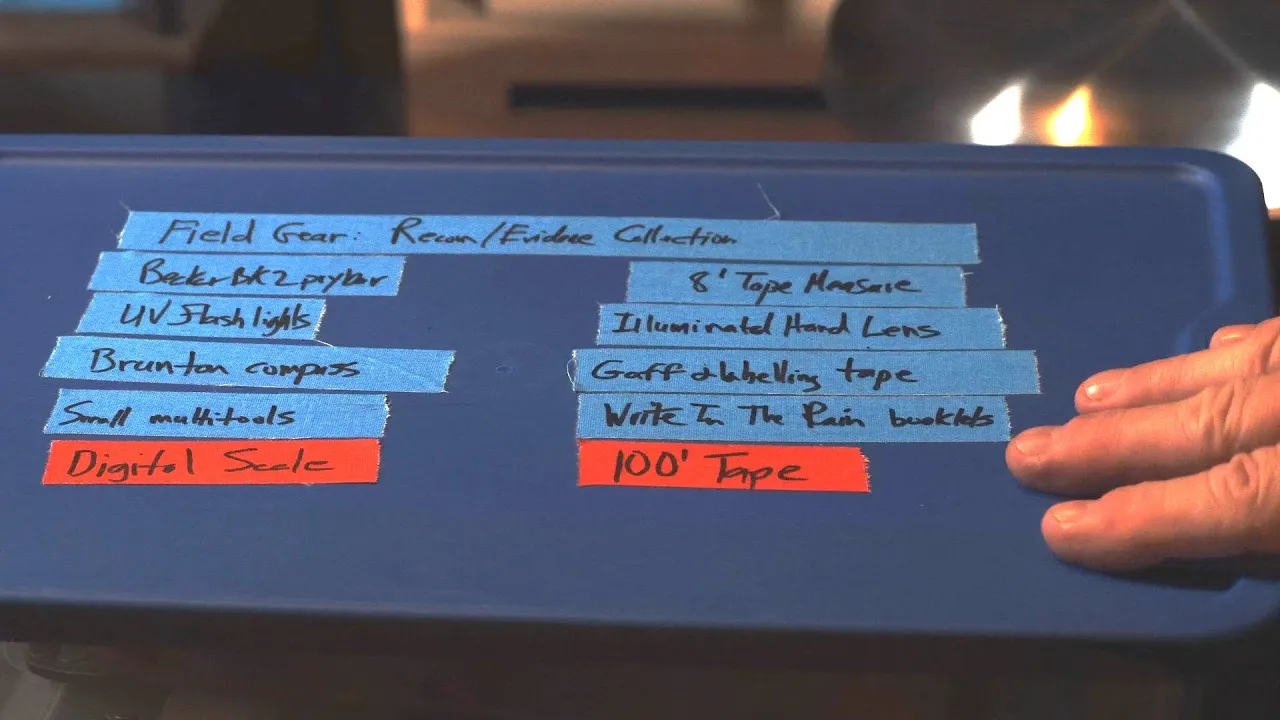 Field Gear: Recon/Evidence Collection
Becker BK2 prybar
UV Flashlights
Brunton compass
Small multitools
Digital Scale
8' Tape Measure
Illuminated Hand Lens
Gaff & labelling tape
Write In The Rain booklets
100' Tape